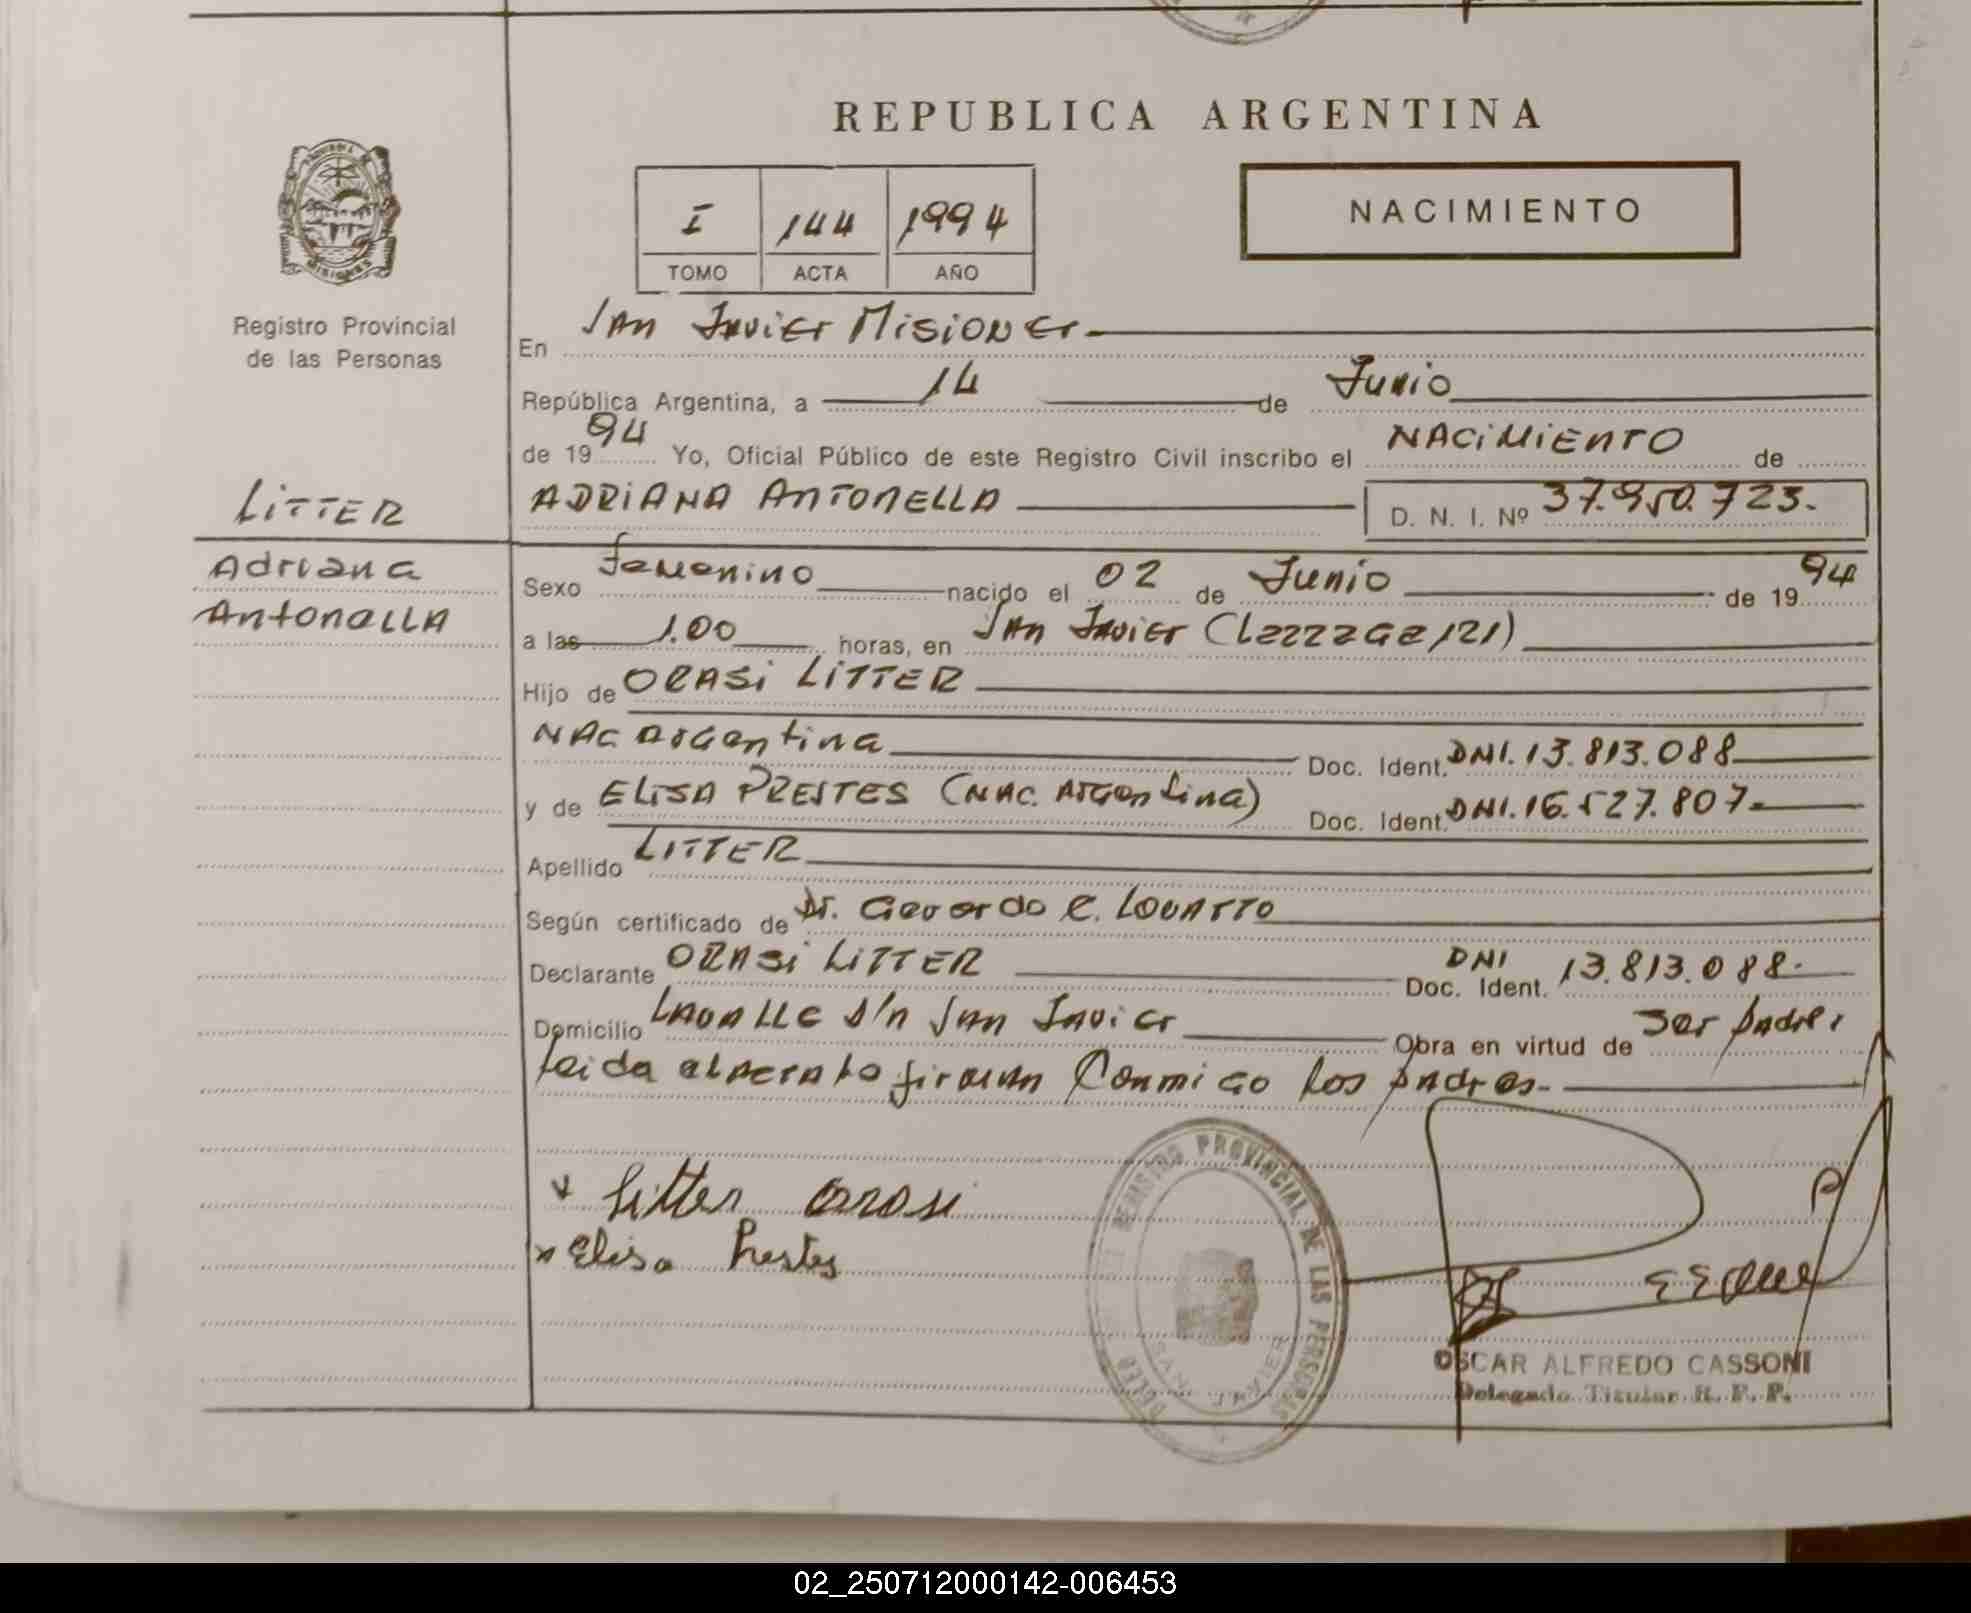 REPUBLICA ARGENTINA
PROVINCIA DE
MISIONES
Registro Provincial
de las Personas
I 144 1994
TOMO ACTA AÑO
NACIMIENTO
En San Javier Misiones
República Argentina, a 14 de Junio
de 1994 Yo, Oficial Público de este Registro Civil inscribo el NACIMIENTO de
LITTER
ADRIANA ANTONELLA D. N. I. Nº 37.950.723.
Adriana
Antonella
Sexo Femenino nacido el 02 de Junio de 1994
a las 1.00 horas, en San Javier (Lezzaga 121)
Hijo de ORASI LITTER
NAC Argentina Doc. Ident. DNI. 13.813.088
y de ELISA PRESTES (NAC. Argentina) Doc. Ident. DNI. 16.527.807
Apellido LITTER
Según certificado de Dr. Gerardo C. LOVATTO
Declarante ORASI LITTER Doc. Ident. DNI 13.813.088.
Domicilio LAVALLE S/n San Javier Obra en virtud de ser padre,
leida el acta lo firman Conmigo los padres.
Litter Orasi
Elisa Prestes
REGISTRO PROVINCIAL DE LAS PERSONAS
SAN JAVIER
OSCAR ALFREDO CASSONI
Delegado Titular R. P. P.
02_250712000142-006453